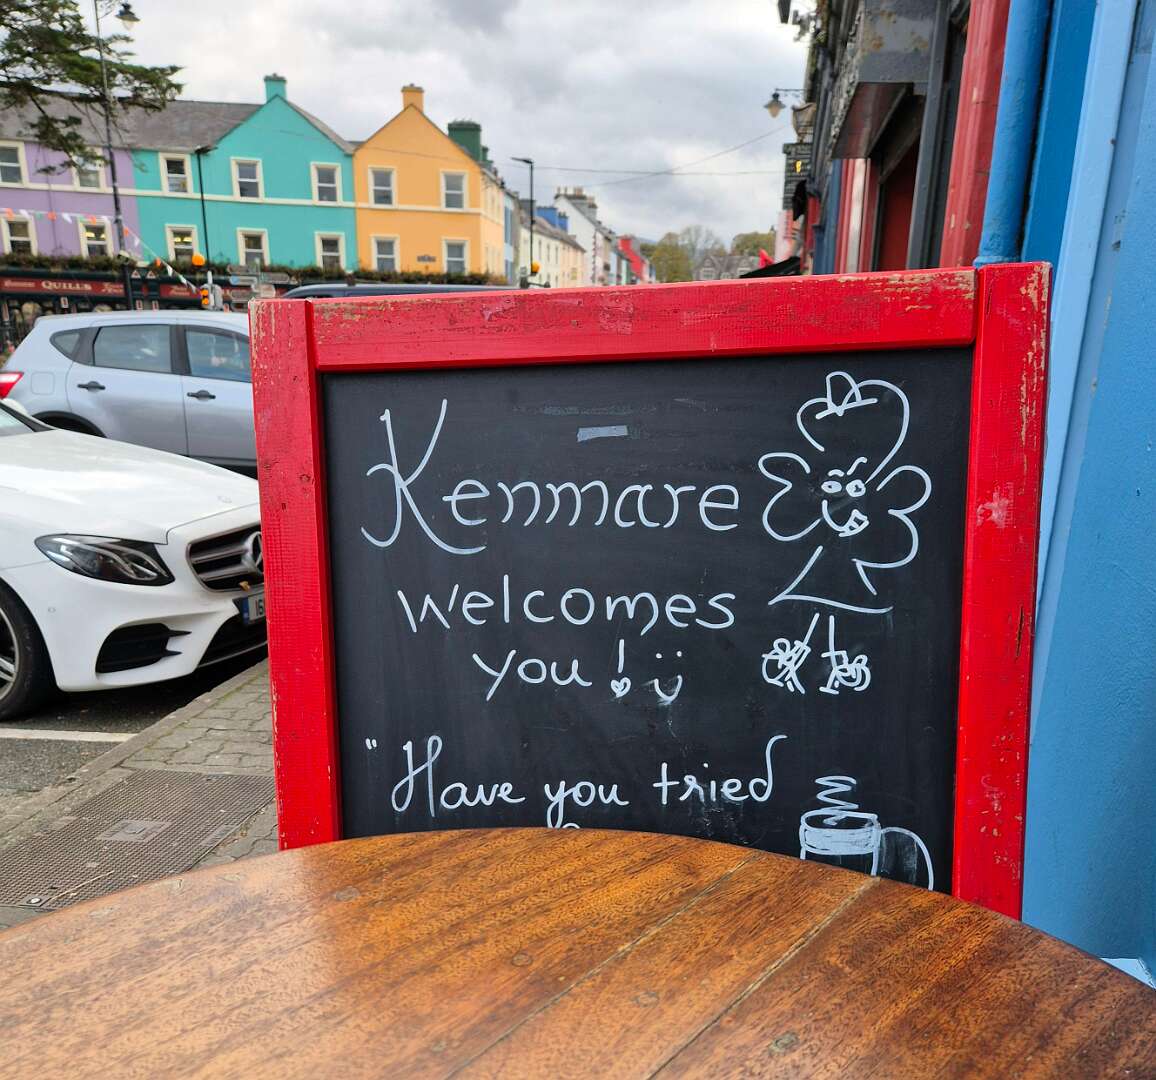 QUILLS
Kenmare
welcomes
you!
"Have you tried